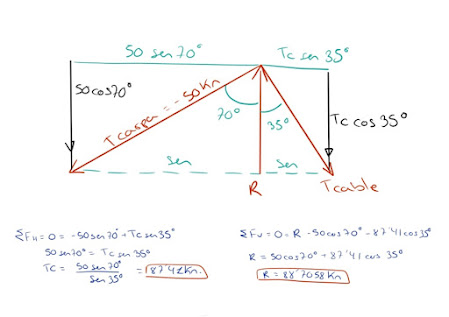 50 sen 70° Tc sen 35°
50cos70°
Tcaspa = -50Kn
Tc cos 35°
70° 35°
sen sen
R Tcable
ΣFH = 0 = -50sen70° + Tc sen35°
50sen70° = Tc sen35°
Tc = 50 sen 70° / sen 35° = 87'42Kn.
ΣFv = 0 = R -50cos70° - 87'41 cos35°
R = 50cos70° + 87'41 cos 35°
R = 88'7058 Kn